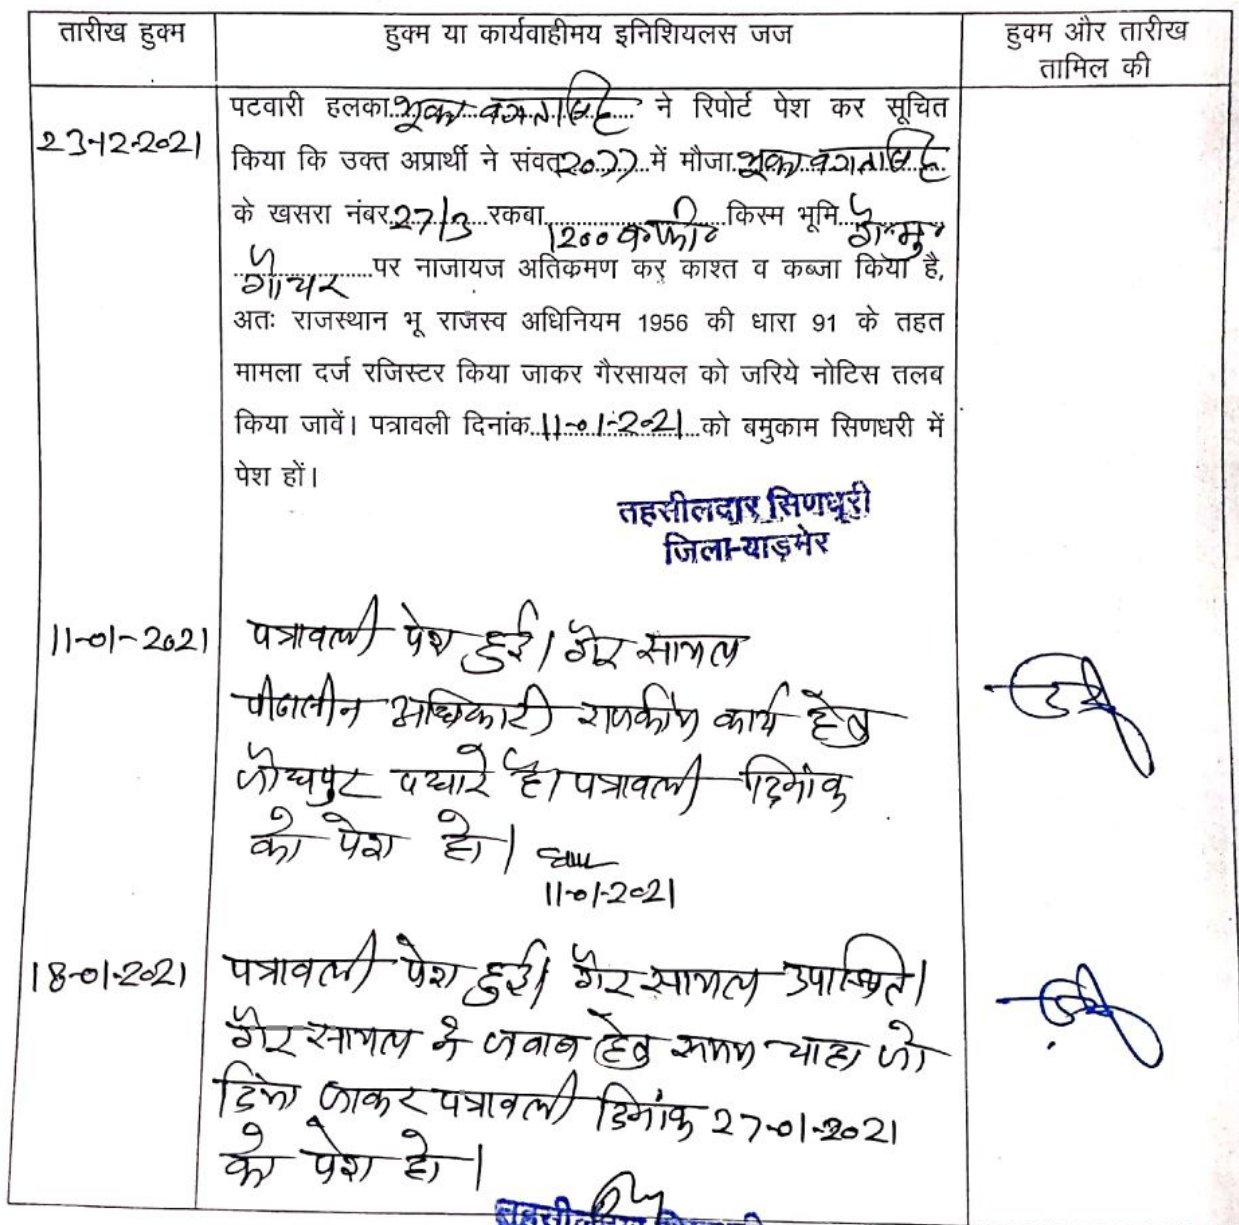 तारीख हुक्म
हुक्म या कार्यवाहीमय इनिशियलस जज
हुक्म और तारीख
तामिल की
23-12-2021
पटवारी हलका भूका भगतसिंह ने रिपोर्ट पेश कर सूचित
किया कि उक्त अप्रार्थी ने संवत 2077 में मौजा भूका भगतसिंह
के खसरा नंबर 27/3 रकबा 1200 व.फी. किस्म भूमि गै.मु.
गौचर पर नाजायज अतिकमण कर काश्त व कब्जा किया है,
अतः राजस्थान भू राजस्व अधिनियम 1956 की धारा 91 के तहत
मामला दर्ज रजिस्टर किया जाकर गैरसायल को जरिये नोटिस तलब
किया जावें। पत्रावली दिनांक 11-01-2021 को बमुकाम सिणधरी में
पेश हों।
तहसीलदार सिणधरी
जिला-बाड़मेर
11-01-2021
पत्रावली पेश हुई। गैर सायल
पीठासीन अधिकारी राजकीय कार्य हेतु
जोधपुर पधारे है। पत्रावली दिनांक
को पेश हो।
11-01-2021
18-01-2021
पत्रावली पेश हुई। गैर सायल उपस्थित।
गैर सायल ने जवाब हेतु समय चाहा जो
दिया जाकर पत्रावली दिनांक 27-01-2021
को पेश हो।
तहसीलदार सिणधरी